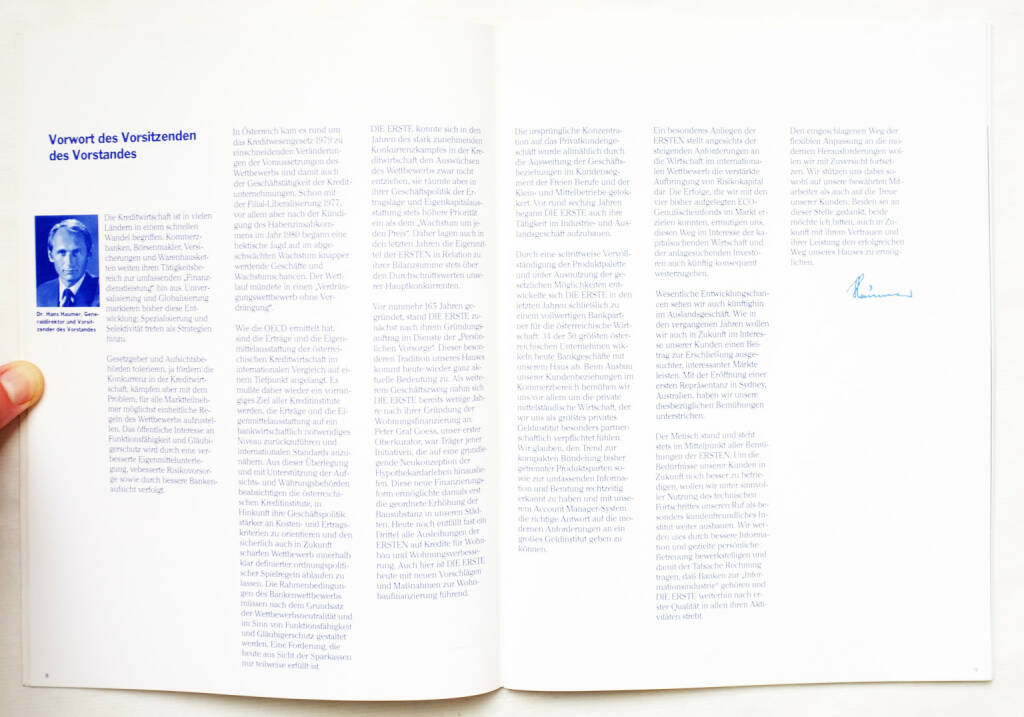 Vorwort des Vorsitzenden
des Vorstandes
Dr. Hans Haumer, Gene-
raldirektor und Vorsit-
zender des Vorstandes
Die Kreditwirtschaft ist in vielen
Ländern in einem schnellen
Wandel begriffen. Kommerz-
banken, Börsenmakler, Versi-
cherungen und Warenhausket-
ten weiten ihren Tätigkeitsbe-
reich zur umfassenden „Finanz-
dienstleistung" hin aus. Univer-
salisierung und Globalisierung
markieren bisher diese Ent-
wicklung; Spezialisierung und
Selektivität treten als Strategien
hinzu.
Gesetzgeber und Aufsichtsbe-
hörden tolerieren, ja fördern die
Konkurrenz in der Kreditwirt-
schaft, kämpfen aber mit dem
Problem, für alle Marktteilneh-
mer möglichst einheitliche Re-
geln des Wettbewerbs aufzustel-
len. Das öffentliche Interesse an
Funktionsfähigkeit und Gläubi-
gerschutz wird durch eine ver-
besserte Eigenmittelunterle-
gung, vebesserte Risikovorsor-
ge sowie durch bessere Banken-
aufsicht verfolgt.
In Österreich kam es rund um
das Kreditwesengesetz 1979 zu
einschneidenden Veränderun-
gen der Voraussetzungen des
Wettbewerbs und damit auch
der Geschäftstätigkeit der Kredit-
unternehmungen. Schon mit
der Filial-Liberalisierung 1977,
vor allem aber nach der Kündi-
gung des Habenzinsabkom-
mens im Jahr 1980 begann eine
hektische Jagd auf im abge-
schwächten Wachstum knapper
werdende Geschäfte und
Wachstumschancen. Der Wett-
lauf mündete in einen „Verdrän-
gungswettbewerb ohne Ver-
drängung".
Wie die OECD ermittelt hat,
sind die Erträge und die Eigen-
mittelausstattung der österrei-
chischen Kreditwirtschaft im
internationalen Vergleich auf ei-
nem Tiefpunkt angelangt. Es
mußte daher wieder ein vorran-
giges Ziel aller Kreditinstitute
werden, die Erträge und die Ei-
genmittelausstattung auf ein
bankwirtschaftlich notwendiges
Niveau zurückzuführen und
internationalen Standards anzu-
nähern. Aus dieser Überlegung
und mit Unterstützung der Auf-
sichts- und Währungsbehörden
beabsichtigen die österreichi-
schen Kreditinstitute, in
Hinkunft ihre Geschäftspolitik
stärker an Kosten- und Ertrags-
kriterien zu orientieren und den
sicherlich auch in Zukunft
scharfen Wettbewerb innerhalb
klar definierter ordnungspoliti-
scher Spielregeln ablaufen zu
lassen. Die Rahmenbedingun-
gen des Bankenwettbewerbs
müssen nach dem Grundsatz
der Wettbewerbsneutralität und
im Sinn von Funktionsfähigkeit
und Gläubigerschutz gestaltet
werden. Eine Forderung, die
heute aus Sicht der Sparkassen
nur teilweise erfüllt ist.
DIE ERSTE konnte sich in den
Jahren des stark zunehmenden
Konkurrenzkampfes in der Kre-
ditwirtschaft den Auswüchsen
des Wettbewerbs zwar nicht
entziehen, sie räumte aber in
ihrer Geschäftspolitik der Er-
tragslage und Eigenkapitalaus-
stattung stets höhere Priorität
ein als dem „Wachstum um je-
den Preis". Daher lagen auch in
den letzten Jahren die Eigenmit-
tel der ERSTEN in Relation zu
ihrer Bilanzsumme stets über
den Durchschnittswerten unse-
rer Hauptkonkurrenten.
Vor nunmehr 165 Jahren ge-
gründet, stand DIE ERSTE zu-
nächst nach ihrem Gründungs-
auftrag im Dienste der „Persön-
lichen Vorsorge". Dieser beson-
deren Tradition unseres Hauses
kommt heute wieder ganz ak-
tuelle Bedeutung zu. Als weite-
ren Geschäftszweig nahm sich
DIE ERSTE bereits wenige Jah-
re nach ihrer Gründung der
Wohnungsfinanzierung an.
Peter Graf Goess, unser erster
Oberkurator, war Träger jener
Initiativen, die auf eine grundle-
gende Neukonzeption der
Hypothekardarlehen hinauslie-
fen. Diese neue Finanzierungs-
form ermöglichte damals erst
die geordnete Erhöhung der
Bausubstanz in unseren Städ-
ten. Heute noch entfällt fast ein
Drittel alle Ausleihungen der
ERSTEN auf Kredite für Wohn-
bau und Wohnungsverbesse-
rung. Auch hier ist DIE ERSTE
heute mit neuen Vorschlägen
und Maßnahmen zur Wohn-
baufinanzierung führend.
8
Die ursprüngliche Konzentra-
tion auf das Privatkundenge-
schäft wurde allmählich durch
die Ausweitung der Geschäfts-
beziehungen im Kundenseg-
ment der Freien Berufe und der
Klein- und Mittelbetriebe gelok-
kert. Vor rund sechzig Jahren
begann DIE ERSTE auch ihre
Tätigkeit im Industrie- und Aus-
landsgeschäft aufzubauen.
Durch eine schrittweise Vervoll-
ständigung der Produktpalette
und unter Ausnutzung der ge-
setzlichen Möglichkeiten ent-
wickelte sich DIE ERSTE in den
letzten Jahren schließlich zu
einem vollwertigen Bankpart-
ner für die österreichische Wirt-
schaft: 34 der 50 größten öster-
reichischen Unternehmen wik-
keln heute Bankgeschäfte mit
unserem Haus ab. Beim Ausbau
unserer Kundenbeziehungen im
Kommerzbereich bemühen wir
uns vor allem um die private
mittelständische Wirtschaft, der
wir uns als größtes privates
Geldinstitut besonders partner-
schaftlich verpflichtet fühlen.
Wir glauben, den Trend zur
kompakten Bündelung bisher
getrennter Produktsparten so-
wie zur umfassenden Informa-
tion und Beratung rechtzeitig
erkannt zu haben und mit unse-
rem Account Manager-System
die richtige Antwort auf die mo-
dernen Anforderungen an ein
großes Geldinstitut geben zu
können.
Ein besonderes Anliegen der
ERSTEN stellt angesichts der
steigenden Anforderungen an
die Wirtschaft im internationa-
len Wettbewerb die verstärkte
Aufbringung von Risikokapital
dar. Die Erfolge, die wir mit den
vier bisher aufgelegten ECO-
Genußscheinfonds im Markt er-
zielen konnten, ermutigen uns,
diesen Weg im Interesse der ka-
pitalsuchenden Wirtschaft und
der anlagesuchenden Investo-
ren auch künftig konsequent
weiterzugehen.
Wesentliche Entwicklungschan-
cen sehen wir auch künftighin
im Auslandsgeschäft. Wie in
den vergangenen Jahren wollen
wir auch in Zukunft im Interes-
se unserer Kunden einen Bei-
trag zur Erschließung ausge-
suchter, interessanter Märkte
leisten. Mit der Eröffnung einer
ersten Repräsentanz in Sydney,
Australien, haben wir unsere
diesbezüglichen Bemühungen
unterstrichen.
Der Mensch stand und steht
stets im Mittelpunkt aller Bemü-
hungen der ERSTEN. Um die
Bedürfnisse unserer Kunden in
Zukunft noch besser zu befrie-
digen, wollen wir unter sinnvol-
ler Nutzung des technischen
Fortschrittes unseren Ruf als be-
sonders kundenfreundliches In-
stitut weiter ausbauen. Wir wer-
den dies durch bessere Informa-
tion und gezielte persönliche
Betreuung bewerkstelligen und
damit der Tatsache Rechnung
tragen, daß Banken zur „Infor-
mationsindustrie" gehören und
DIE ERSTE weiterhin nach er-
ster Qualität in allen ihren Akti-
vitäten strebt.
Den eingeschlagenen Weg der
flexiblen Anpassung an die mo-
dernen Herausforderungen wol-
len wir mit Zuversicht fortset-
zen. Wir stützen uns dabei so-
wohl auf unsere bewährten Mit-
arbeiter als auch auf die Treue
unserer Kunden. Beiden sei an
dieser Stelle gedankt, beide
möchte ich bitten, auch in Zu-
kunft mit ihrem Vertrauen und
ihrer Leistung den erfolgreichen
Weg unseres Hauses zu ermög-
lichen.